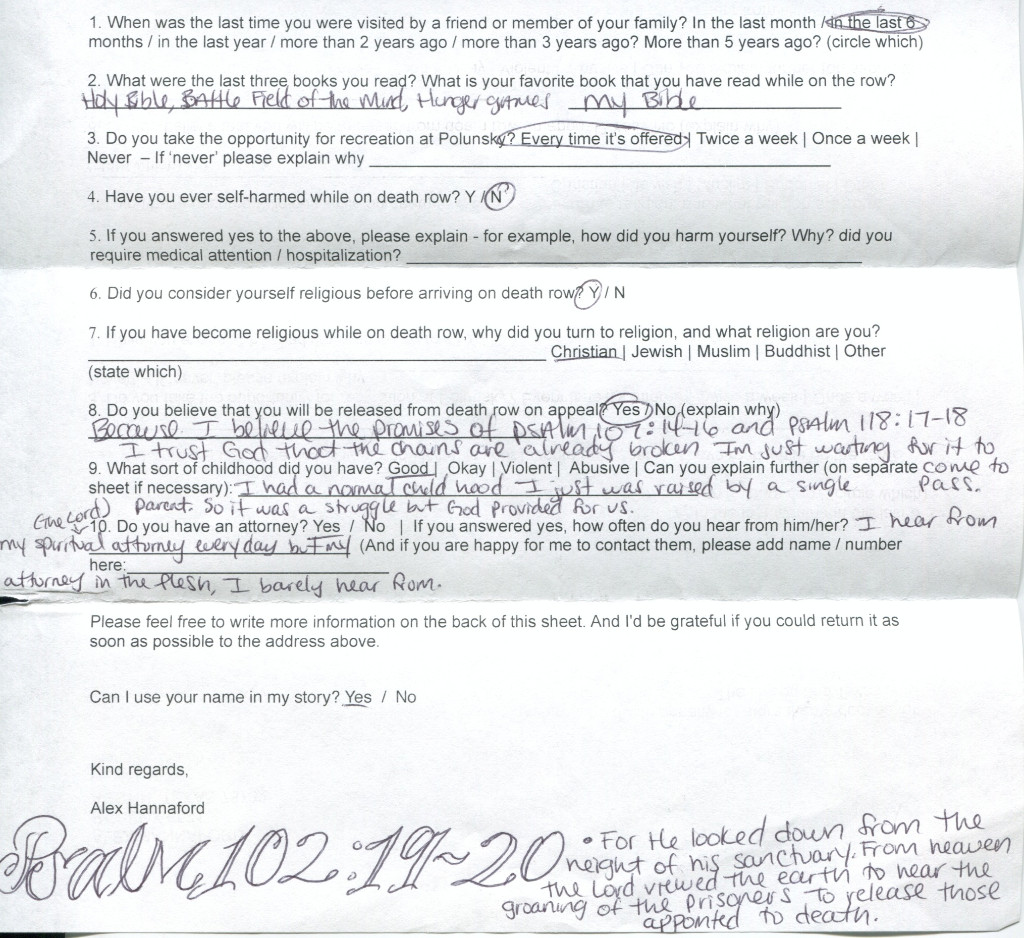 1. When was the last time you were visited by a friend or member of your family? In the last month / in the last 6
months / in the last year / more than 2 years ago / more than 3 years ago? More than 5 years ago? (circle which)
2. What were the last three books you read? What is your favorite book that you have read while on the row?
Holy Bible, BAttle Field of the Mind, Hunger games my Bible
3. Do you take the opportunity for recreation at Polunsky? Every time it's offered | Twice a week | Once a week |
Never – If 'never' please explain why
4. Have you ever self-harmed while on death row? Y / N
5. If you answered yes to the above, please explain - for example, how did you harm yourself? Why? did you
require medical attention / hospitalization?
6. Did you consider yourself religious before arriving on death row? Y / N
7. If you have become religious while on death row, why did you turn to religion, and what religion are you?
Christian | Jewish | Muslim | Buddhist | Other
(state which)
8. Do you believe that you will be released from death row on appeal? Yes / No (explain why)
Because I believe the promises of PSAlm 107:14-16 and PSAlm 118:17-18
I trust God that the chains are already broken Im just waiting for it to
9. What sort of childhood did you have? Good | Okay | Violent | Abusive | Can you explain further (on separate come to
sheet if necessary): I had a normal child hood I just was raised by a single pass.
Parent. So it was a struggle but God provided for us.
(The Lord)
10. Do you have an attorney? Yes / No | If you answered yes, how often do you hear from him/her? I hear from
my spiritual attorney every day but my (And if you are happy for me to contact them, please add name / number
here:
attorney in the flesh, I barely hear from.
Please feel free to write more information on the back of this sheet. And I'd be grateful if you could return it as
soon as possible to the address above.
Can I use your name in my story? Yes / No
Kind regards,
Alex Hannaford
Psalm 102:19~20
• For He looked down from the
height of his sanctuary. From heaven
the Lord viewed the earth to hear the
groaning of the prisoners To release those
appointed to death.